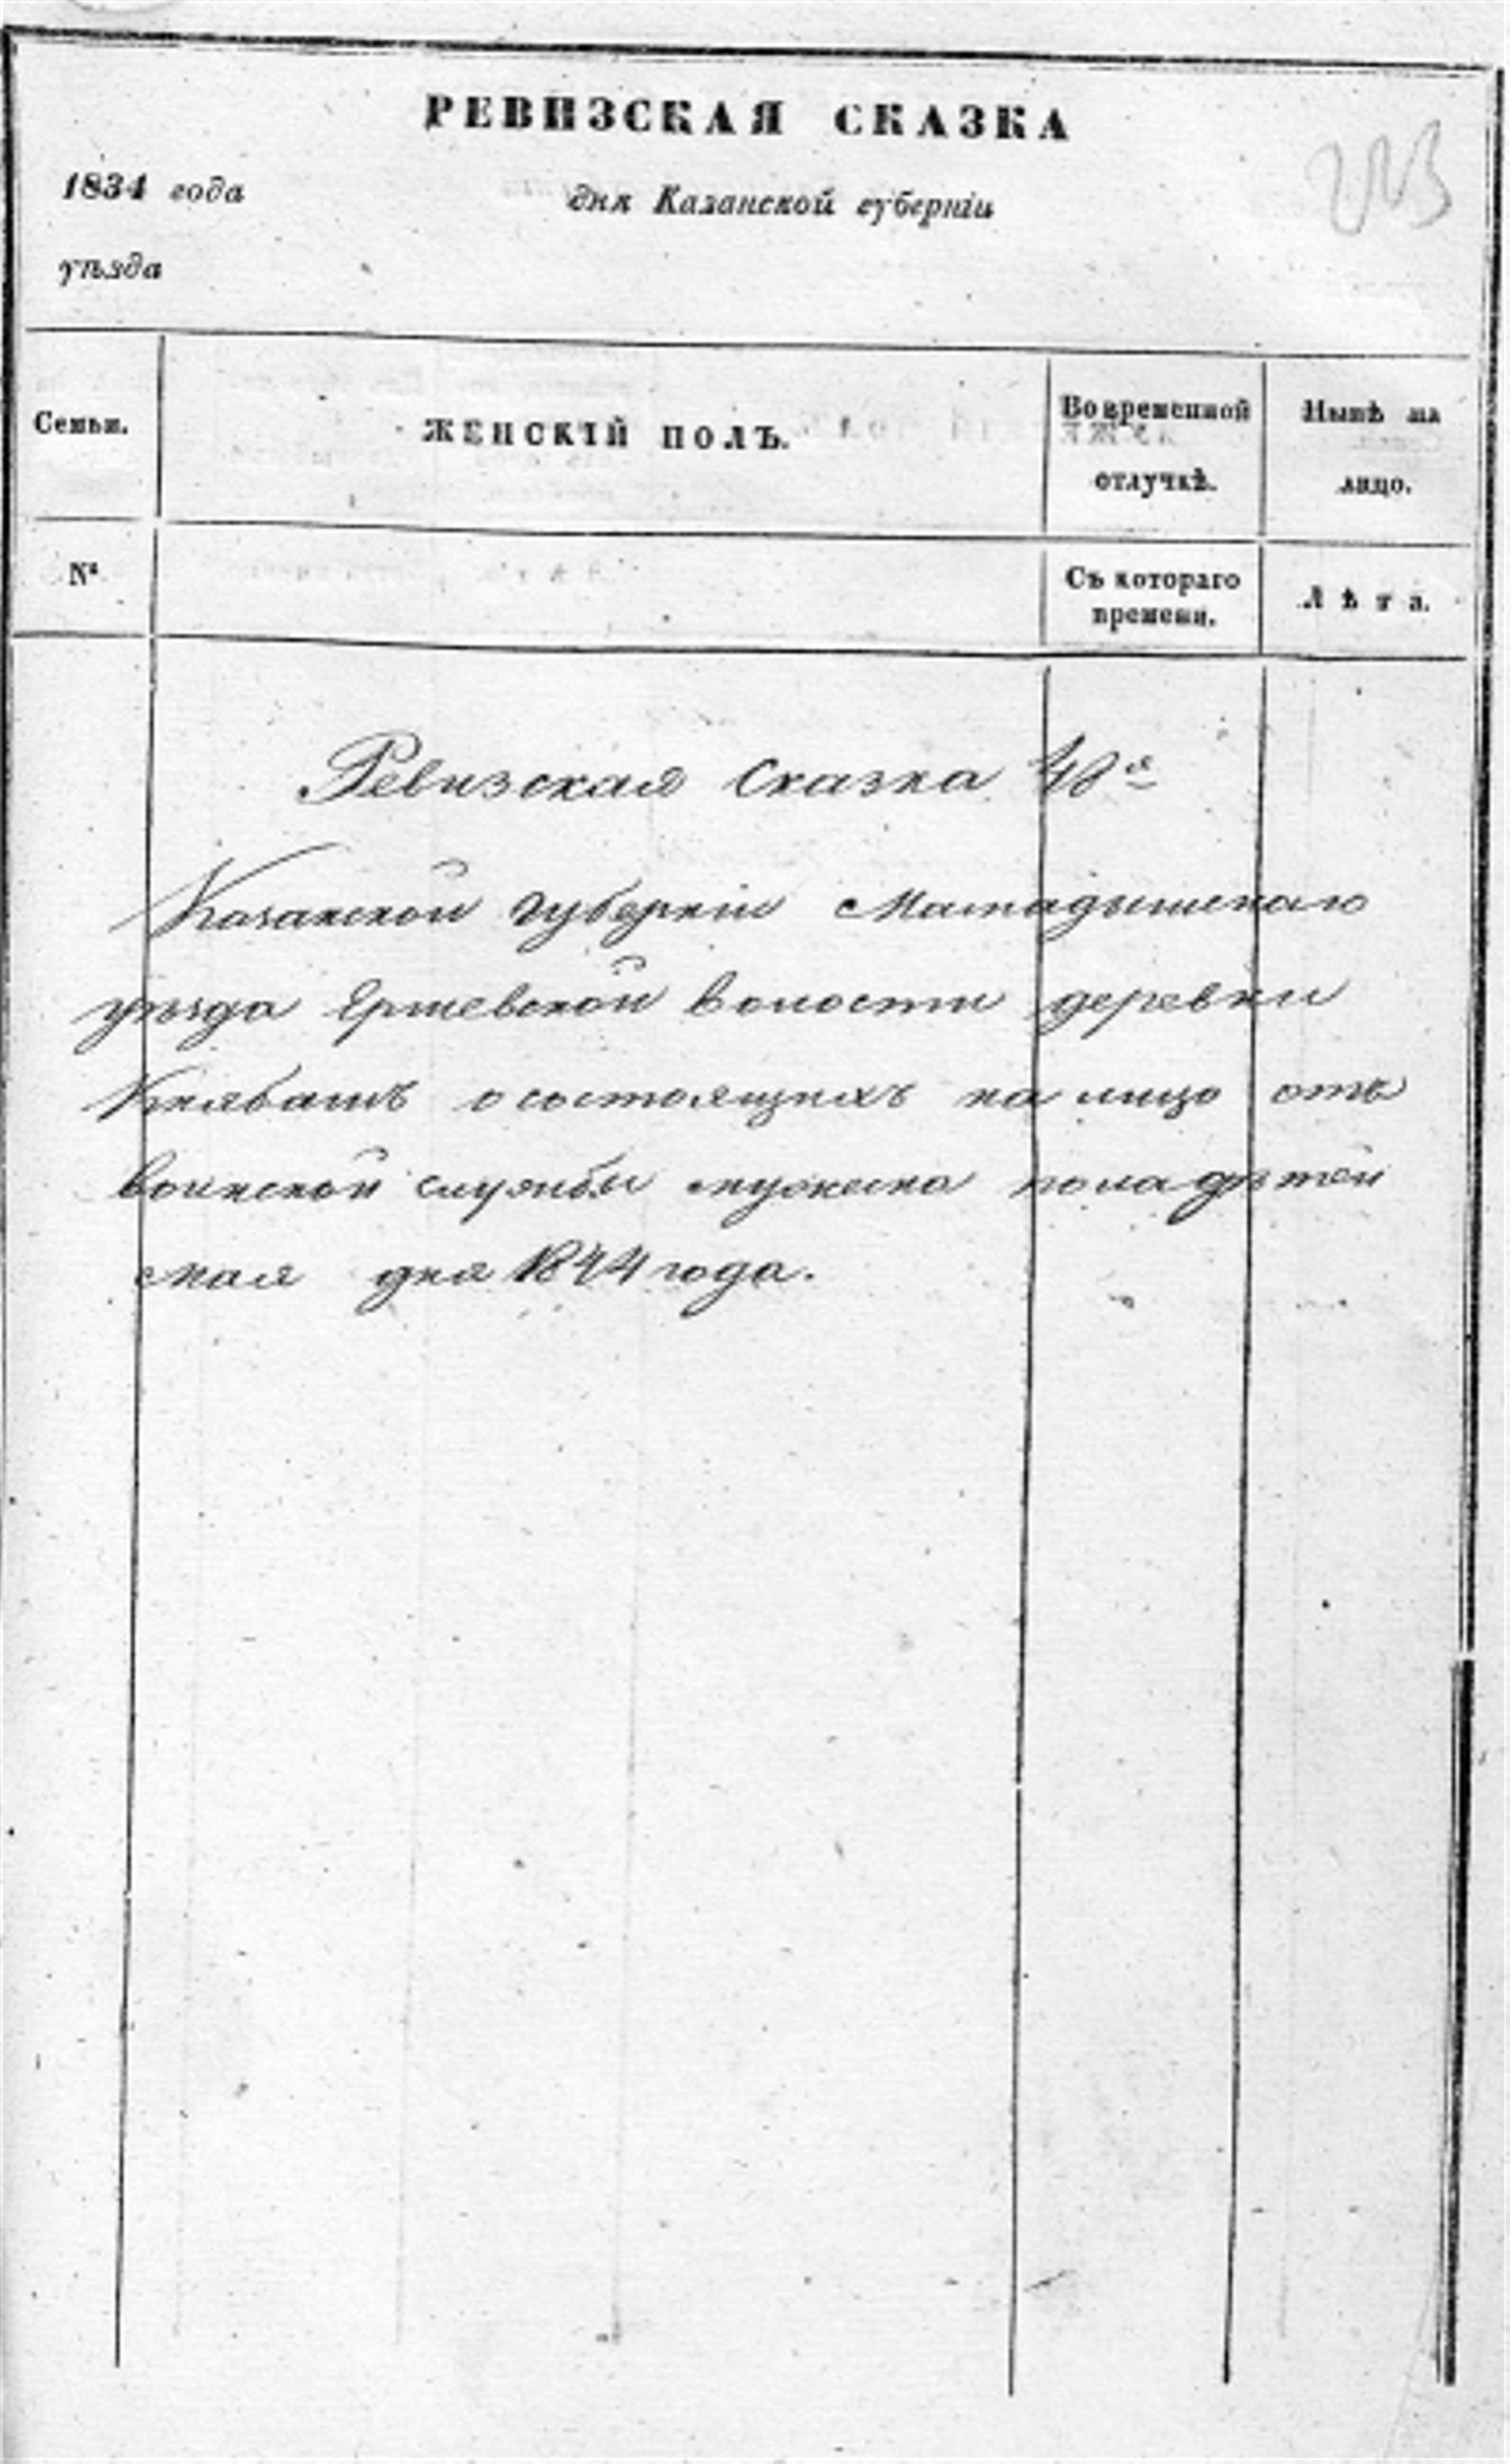 РЕВИЗСКАЯ СКАЗКА
1834 года дня Казанской губерніи
уѣзда
Семьи.
ЖЕНСКІЙ ПОЛЪ.
Во временной
отлучкѣ.
Нынѣ на
лицо.
№
Съ котораго
времени.
Лѣта.
Ревизская Сказка
Казанской губерніи Мамадышскаго
уѣзда Ершевской волости деревни
Княбашъ о состоящихъ на лицо отъ
воинской службы мужеска пола дѣтей
мая дня 1844 года.